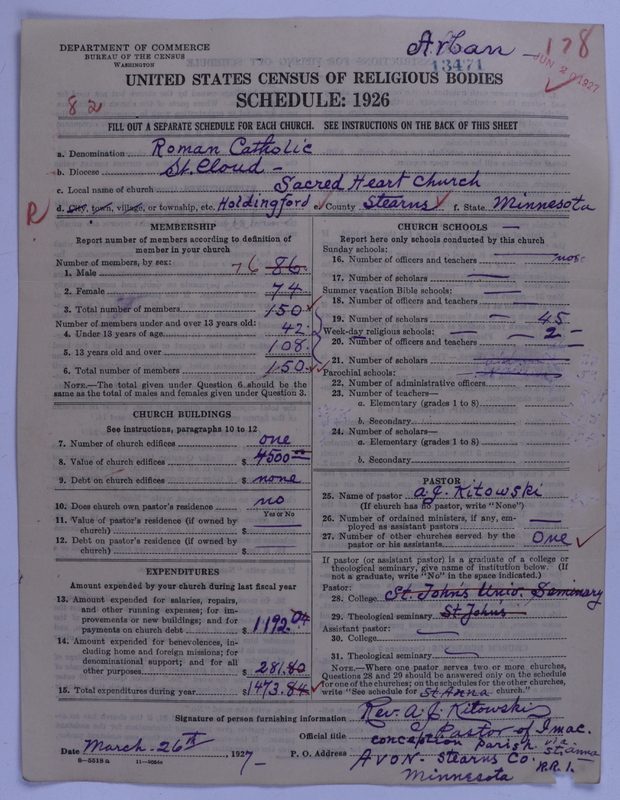 DEPARTMENT OF COMMERCE
BUREAU OF THE CENSUS
WASHINGTON
Arban
178
13471
JUN 20 1927
UNITED STATES CENSUS OF RELIGIOUS BODIES
SCHEDULE: 1926
82
FILL OUT A SEPARATE SCHEDULE FOR EACH CHURCH. SEE INSTRUCTIONS ON THE BACK OF THIS SHEET
a. Denomination Roman Catholic
b. Diocese St. Cloud -
c. Local name of church Sacred Heart Church
R d. City, town, village, or township, etc. Holdingford e. County Stearns f. State Minnesota
MEMBERSHIP
Report number of members according to definition of
member in your church
Number of members, by sex:
1. Male 76 86
2. Female 74
3. Total number of members 150
Number of members under and over 13 years old:
4. Under 13 years of age 42
5. 13 years old and over 108
6. Total number of members 150
NOTE.—The total given under Question 6 should be the
same as the total of males and females given under Question 3.
CHURCH BUILDINGS
See instructions, paragraphs 10 to 12
7. Number of church edifices one
8. Value of church edifices $ 4500 00
9. Debt on church edifices $ none
10. Does church own pastor's residence no
Yes or No
11. Value of pastor's residence (if owned by
church) $
12. Debt on pastor's residence (if owned by
church) $
EXPENDITURES
Amount expended by your church during last fiscal year
13. Amount expended for salaries, repairs,
and other running expenses; for im-
provements or new buildings; and for
payments on church debt $ 1192.04
14. Amount expended for benevolences, in-
cluding home and foreign missions; for
denominational support; and for all
other purposes $ 281.80
15. Total expenditures during year $ 1473.84
CHURCH SCHOOLS —
Report here only schools conducted by this church
Sunday schools:
16. Number of officers and teachers
17. Number of scholars
Summer vacation Bible schools:
18. Number of officers and teachers
19. Number of scholars — 45
Week-day religious schools: — — 2 -
20. Number of officers and teachers
21. Number of scholars
Parochial schools:
22. Number of administrative officers
23. Number of teachers—
a. Elementary (grades 1 to 8)
b. Secondary
24. Number of scholars—
a. Elementary (grades 1 to 8)
b. Secondary
PASTOR
25. Name of pastor A. J. Kitowski
(If church has no pastor, write "None")
26. Number of ordained ministers, if any, em-
ployed as assistant pastors
27. Number of other churches served by the
pastor or his assistants one
If pastor (or assistant pastor) is a graduate of a college or
theological seminary, give name of institution below. (If
not a graduate, write "No" in the space indicated.)
Pastor:
28. College St. John's Univ. Seminary
29. Theological seminary St Johns
Assistant pastor:
30. College
31. Theological seminary
NOTE.—Where one pastor serves two or more churches,
Questions 28 and 29 should be answered only on the schedule
for one of the churches; on the schedules for the other churches,
write "See schedule for St Anna church."
Signature of person furnishing information Rev. A. J. Kitowski
Official title Pastor of Imac.
conception parish via St. Anna
Date March-26th, 1927- P. O. Address AVON - Stearns Co. R.R.1.
Minnesota
8—5518a 11—8064a